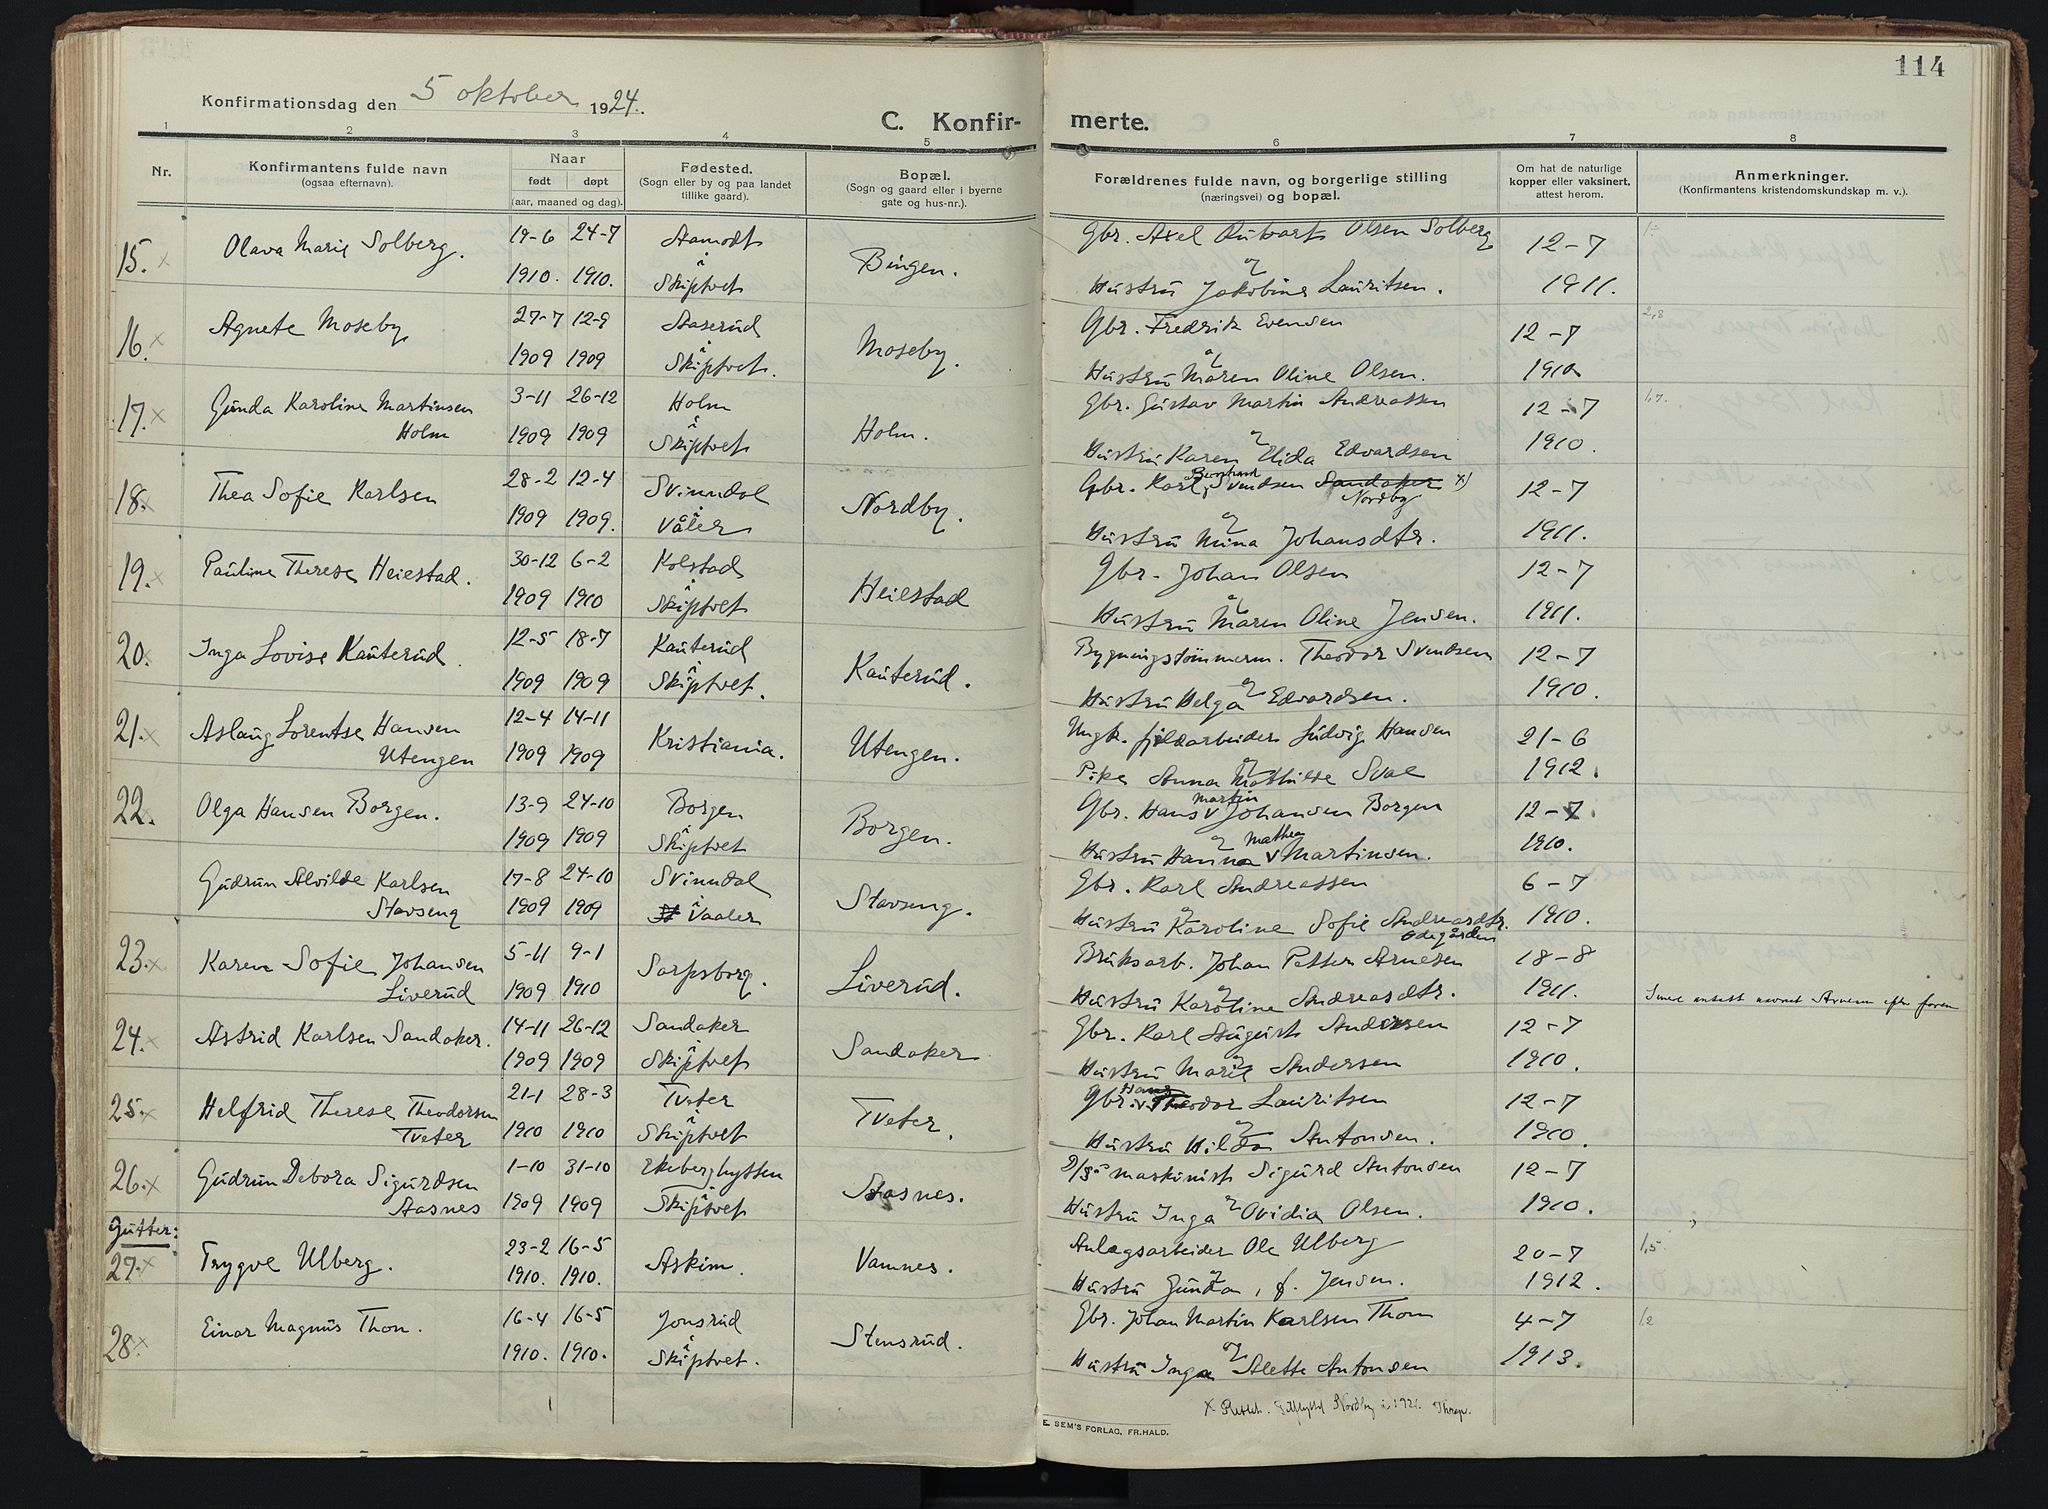 114
Konfirmationsdag den 5 oktober 1924.
C. Konfir- merte.
1 2 3 4 5 6 7 8
Nr.
Konfirmantens fulde navn
(ogsaa efternavn).
Naar
født døpt
(aar, maaned og dag).
Fødested.
(Sogn eller by og paa landet
tillike gaard).
Bopæl.
(Sogn og gaard eller i byerne
gate og hus-nr.).
Forældrenes fulde navn, og borgerlige stilling
(næringsvei) og bopæl.
Om hat de naturlige
kopper eller vaksinert,
attest herom.
Anmerkninger.
(Konfirmantens kristendomskundskap m. v.).
15. x Olava Marie Solberg. 19-6 24-7 Aamodt Bingen. Gbr. Axel Olsen Solberg 12-7
1910. 1910. å Skiptvet og Hustru Jakobine Lauritsen. 1911.
16. x Agnete Moseby 27-7 12-9 Aaserud Moseby. Gbr. Fredrik Evensen 12-7 2,8
1909 1909 å Skiptvet. og Hustru Maren Oline Olsen. 1910
17. x Gunda Karoline Martinsen 3-11 26-12 Holm Holm. Gbr. Gustav Martin Andreassen 12-7 1,7.
Holm 1909 1909 å Skiptvet og Hustru Karen Elida Edvardsen 1910.
18. x Thea Sofie Karlsen 28-2 12-4 Svinndal Nordby. Gbr. Karl Bernhard Svendsen Sandaker x) Nordby 12-7
1909 1909. å Våler og Hustru Mina Johansdtr. 1911.
19. x Pauline Therese Heiestad. 30-12 6-2 Kolstad Heiestad Gbr. Johan Olsen 12-7
1909 1910 å Skiptvet og Hustru Maren Oline Jensen. 1911.
20. x Inga Lovise Kauterud. 12-5 18-7 Kauterud Kauterud. Bygningstømmerm. Theodor Svendsen 12-7
1909 1909 å Skiptvet. og Hustru Helga Edvardsen. 1910.
21. x Aslaug Lorentse Hansen 12-4 14-11 Kristiania. Utengen. Ungk. Ludvig Hansen 21-6
Utengen 1909 1909 og Pike Anna Mathilde Svae 1912.
22. Olga Hansen Borgen. 13-9 24-10 Borgen Borgen. Gbr. Hans Martin Johansen Borgen 12-7.
1909 1909 å Skiptvet og Hustru Hanna Mathea Martinsen. 1910.
Gudrun Alvilde Karlsen 17-8 24-10 Svinndal Stavseng. Gbr. Karl Andreassen 6-7
Stavseng 1909 1909 å Vaaler og Hustru Karoline Sofie Andreasdtr. Ødegården 1910.
23. x Karen Sofie Johansen 5-11 9-1 Sarpsborg. Liverud. Bruksarb. Johan Petter Arnesen 18-8
Liverud 1909 1910 og Hustru Karoline Andreasdtr. 1911.
24. x Astrid Karlsen Sandaker. 14-11 26-12 Sandaker Sandaker Gbr. Karl August Andersen 12-7
1909 1909 å Skiptvet og Hustru Marie Andersen 1910.
25. x Helfrid Therese Theodorsen 21-1 28-3 Tveter Tveter. Gbr. Hans Theodor Lauritsen 12-7
Tveter 1910 1910 å Skiptvet og Hustru Hilda Antonsen. 1910.
26. x Gudrun Debora Sigurdsen 1-10 31-10 Ekeberghytten Aasnes. maskinist Sigurd Antonsen 12-7
Aasnes 1909 1909 å Skiptvet og Hustru Inga Ovidia Olsen. 1910.
Gutter:
27. x Trygve Ulberg. 23-2 16-5 Askim. Vamnes. Anlægsarbeider Ole Ulberg 20-7 1,5.
1910. 1910. og Hustru Gunda, f. Jensen. 1912.
28. x Einar Magnus Thon. 16-4 16-5 Jonsrud Stensrud. Gbr. Johan Martin Karlsen Thom 4-7 1,2
1910. 1910. å Skiptvet. og Hustru Inga Alette Antonsen 1913.
x Nordby i 1921.
E. SEM'S FORLAG, FR.HALD.